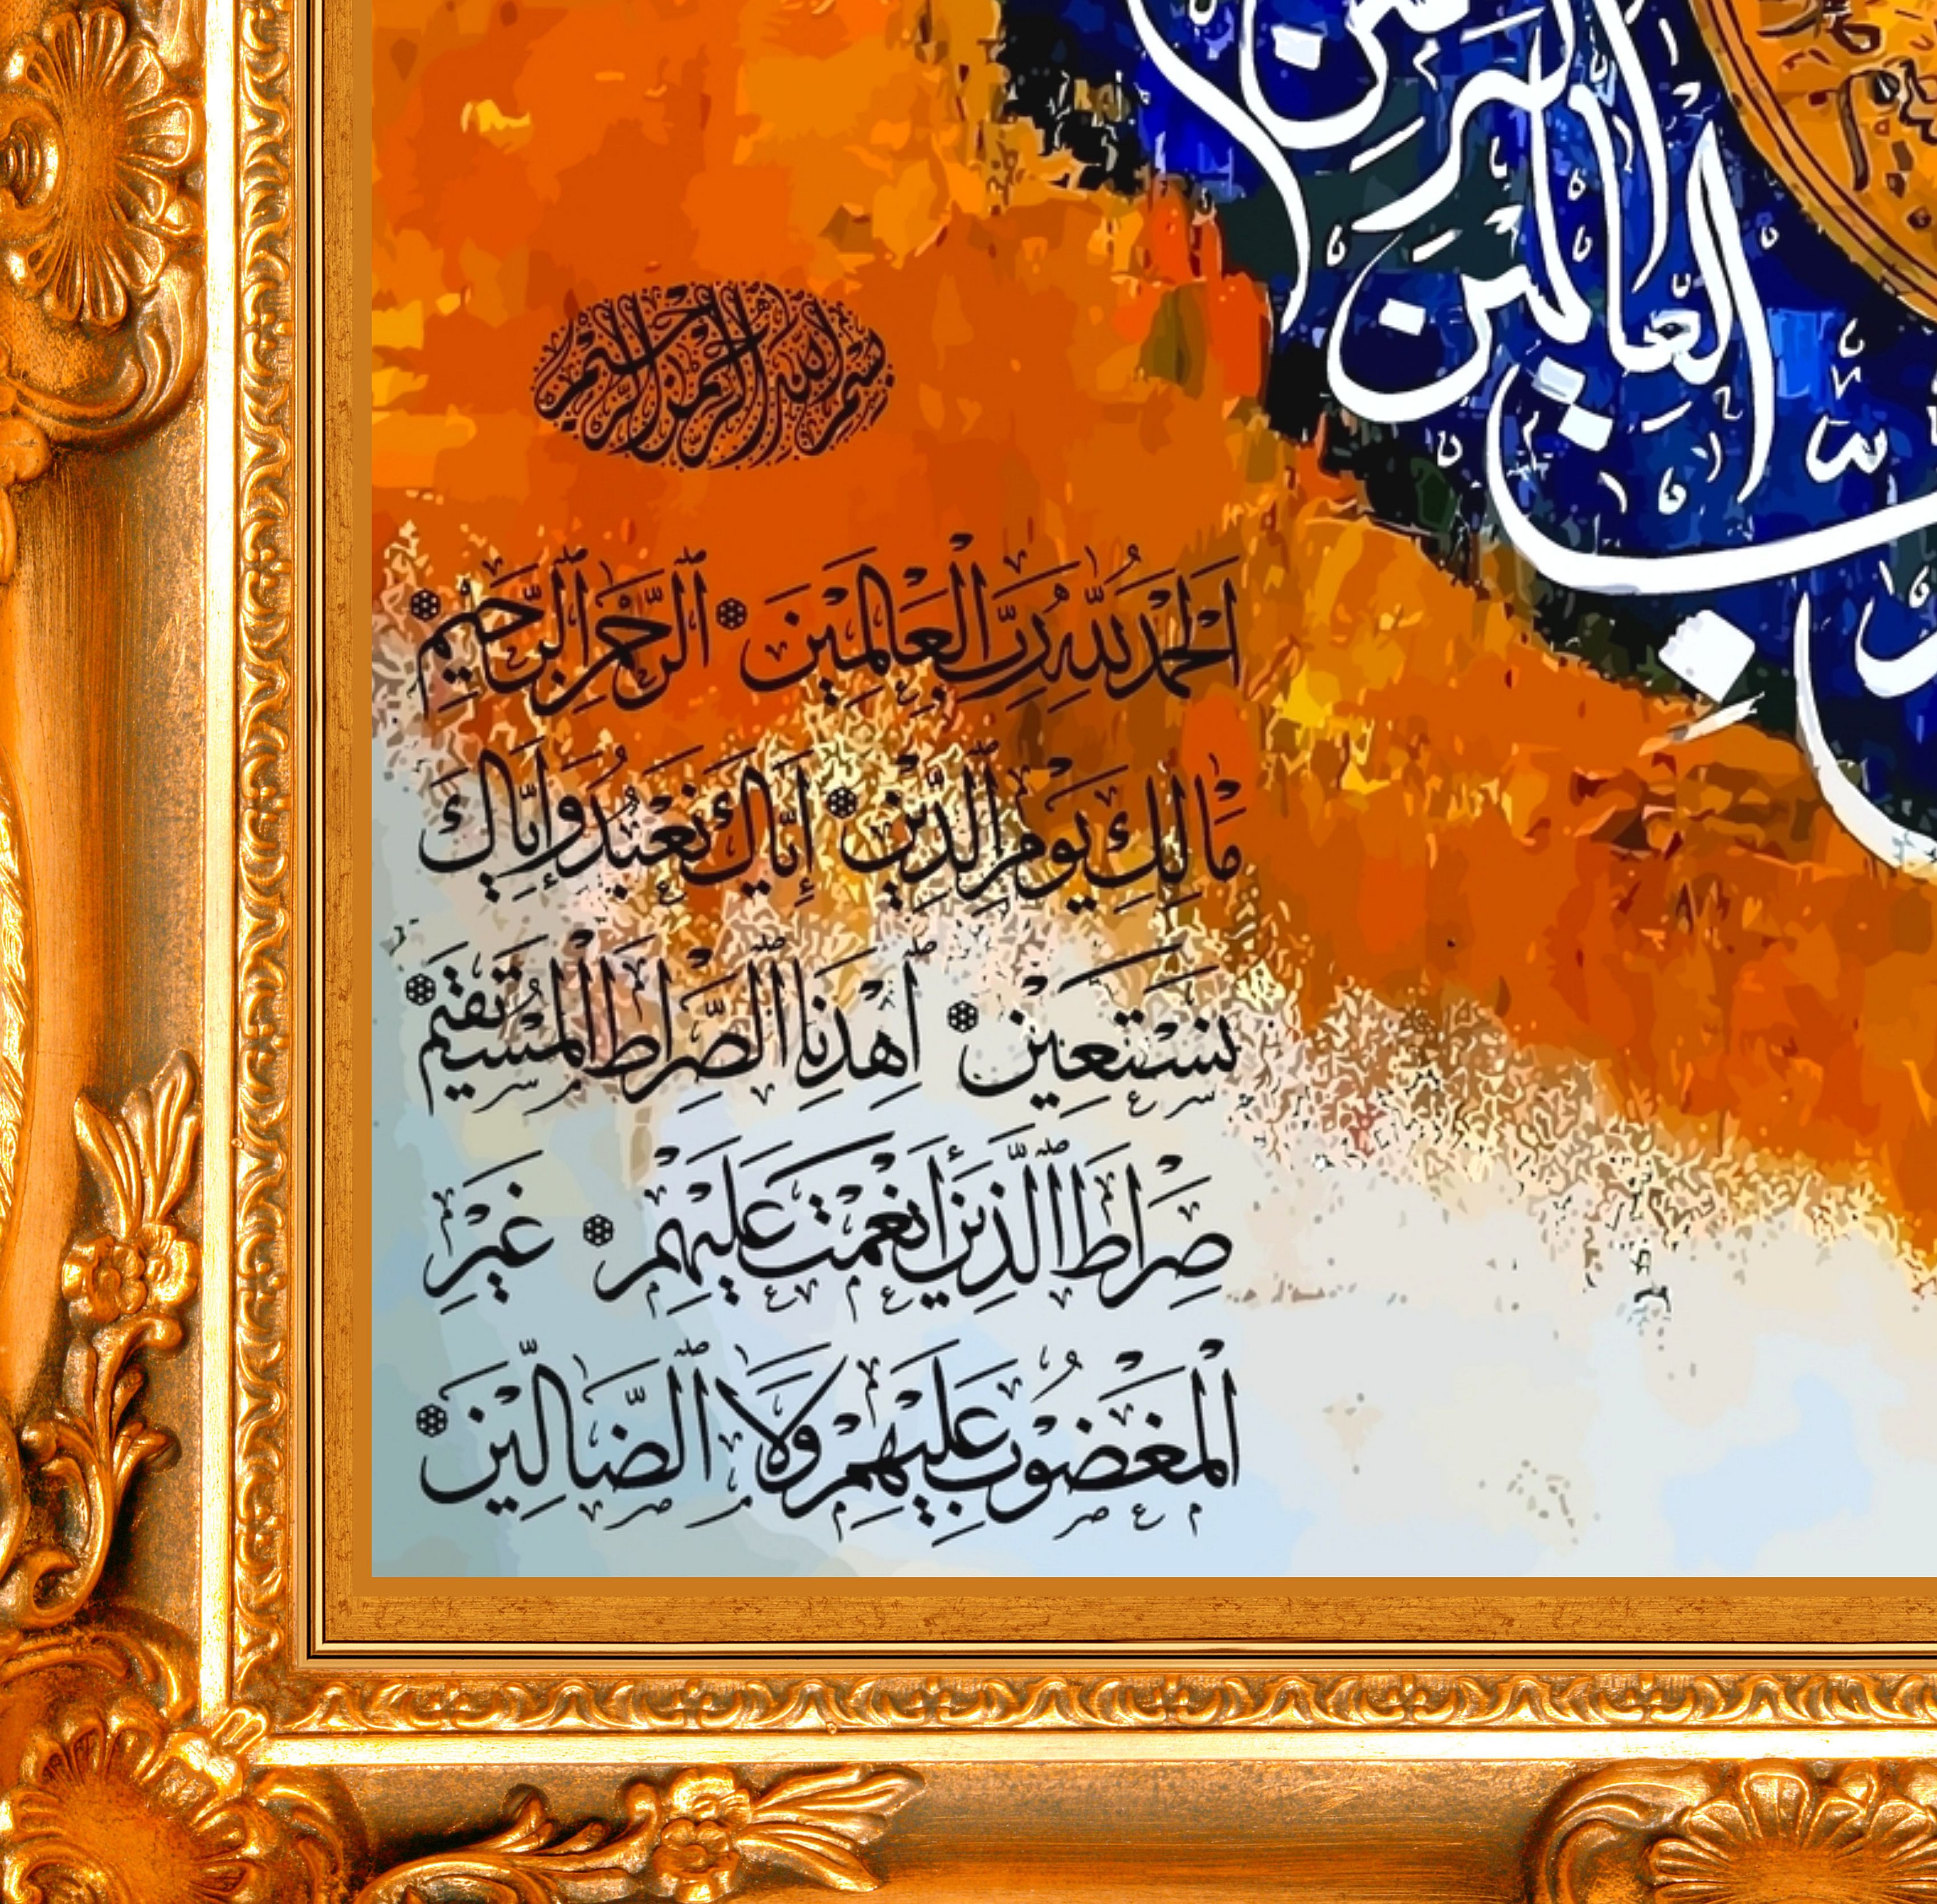 الرحمن
العالمين
رب
بسم الله الرحمن الرحيم
اَلْحَمْدُ لِلّٰهِ رَبِّ الْعَالَمِيْنَ ۞ ٱلرَّحْمٰنِ ٱلرَّحِيْمِ ۞
مَالِكِ يَوْمِ ٱلدِّيْنِ ۞ إِيَّاكَ نَعْبُدُ وَإِيَّاكَ
نَسْتَعِيْنُ ۞ ٱهْدِنَا ٱلصِّرَاطَ الْمُسْتَقِيْمَ ۞
صِرَاطَ ٱلَّذِيْنَ أَنْعَمْتَ عَلَيْهِمْ ۞ غَيْرِ
الْمَغْضُوْبِ عَلَيْهِمْ وَلَا ٱلضَّالِّيْنَ ۞